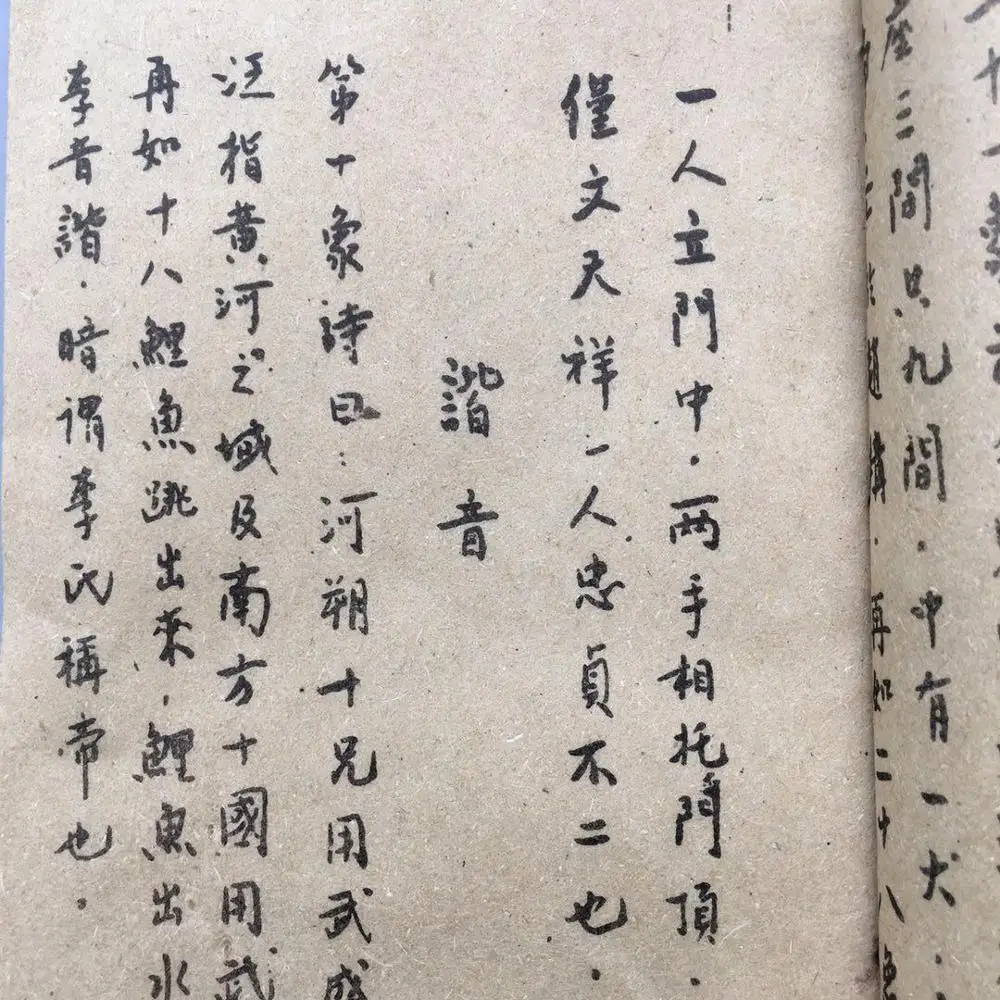 座三間只九間．中有一犬．
再如二十八
一人立門中．兩手相托門頂．
僅文天祥一人忠貞不二也．
諧音
第十象詩曰：河朔十兄用武
泛指黃河之域及南方十國用武
再如十八鯉魚跳出來，鯉魚出水
李音諧．暗謂李氏稱帝也。